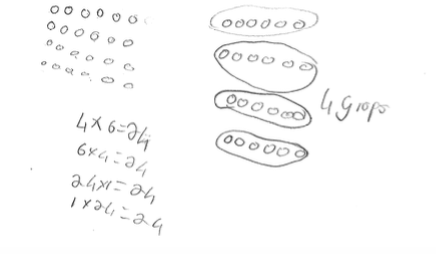 4 × 6 = 24
6 × 4 = 24
24 × 1 = 24
1 × 24 = 24
4 Grops